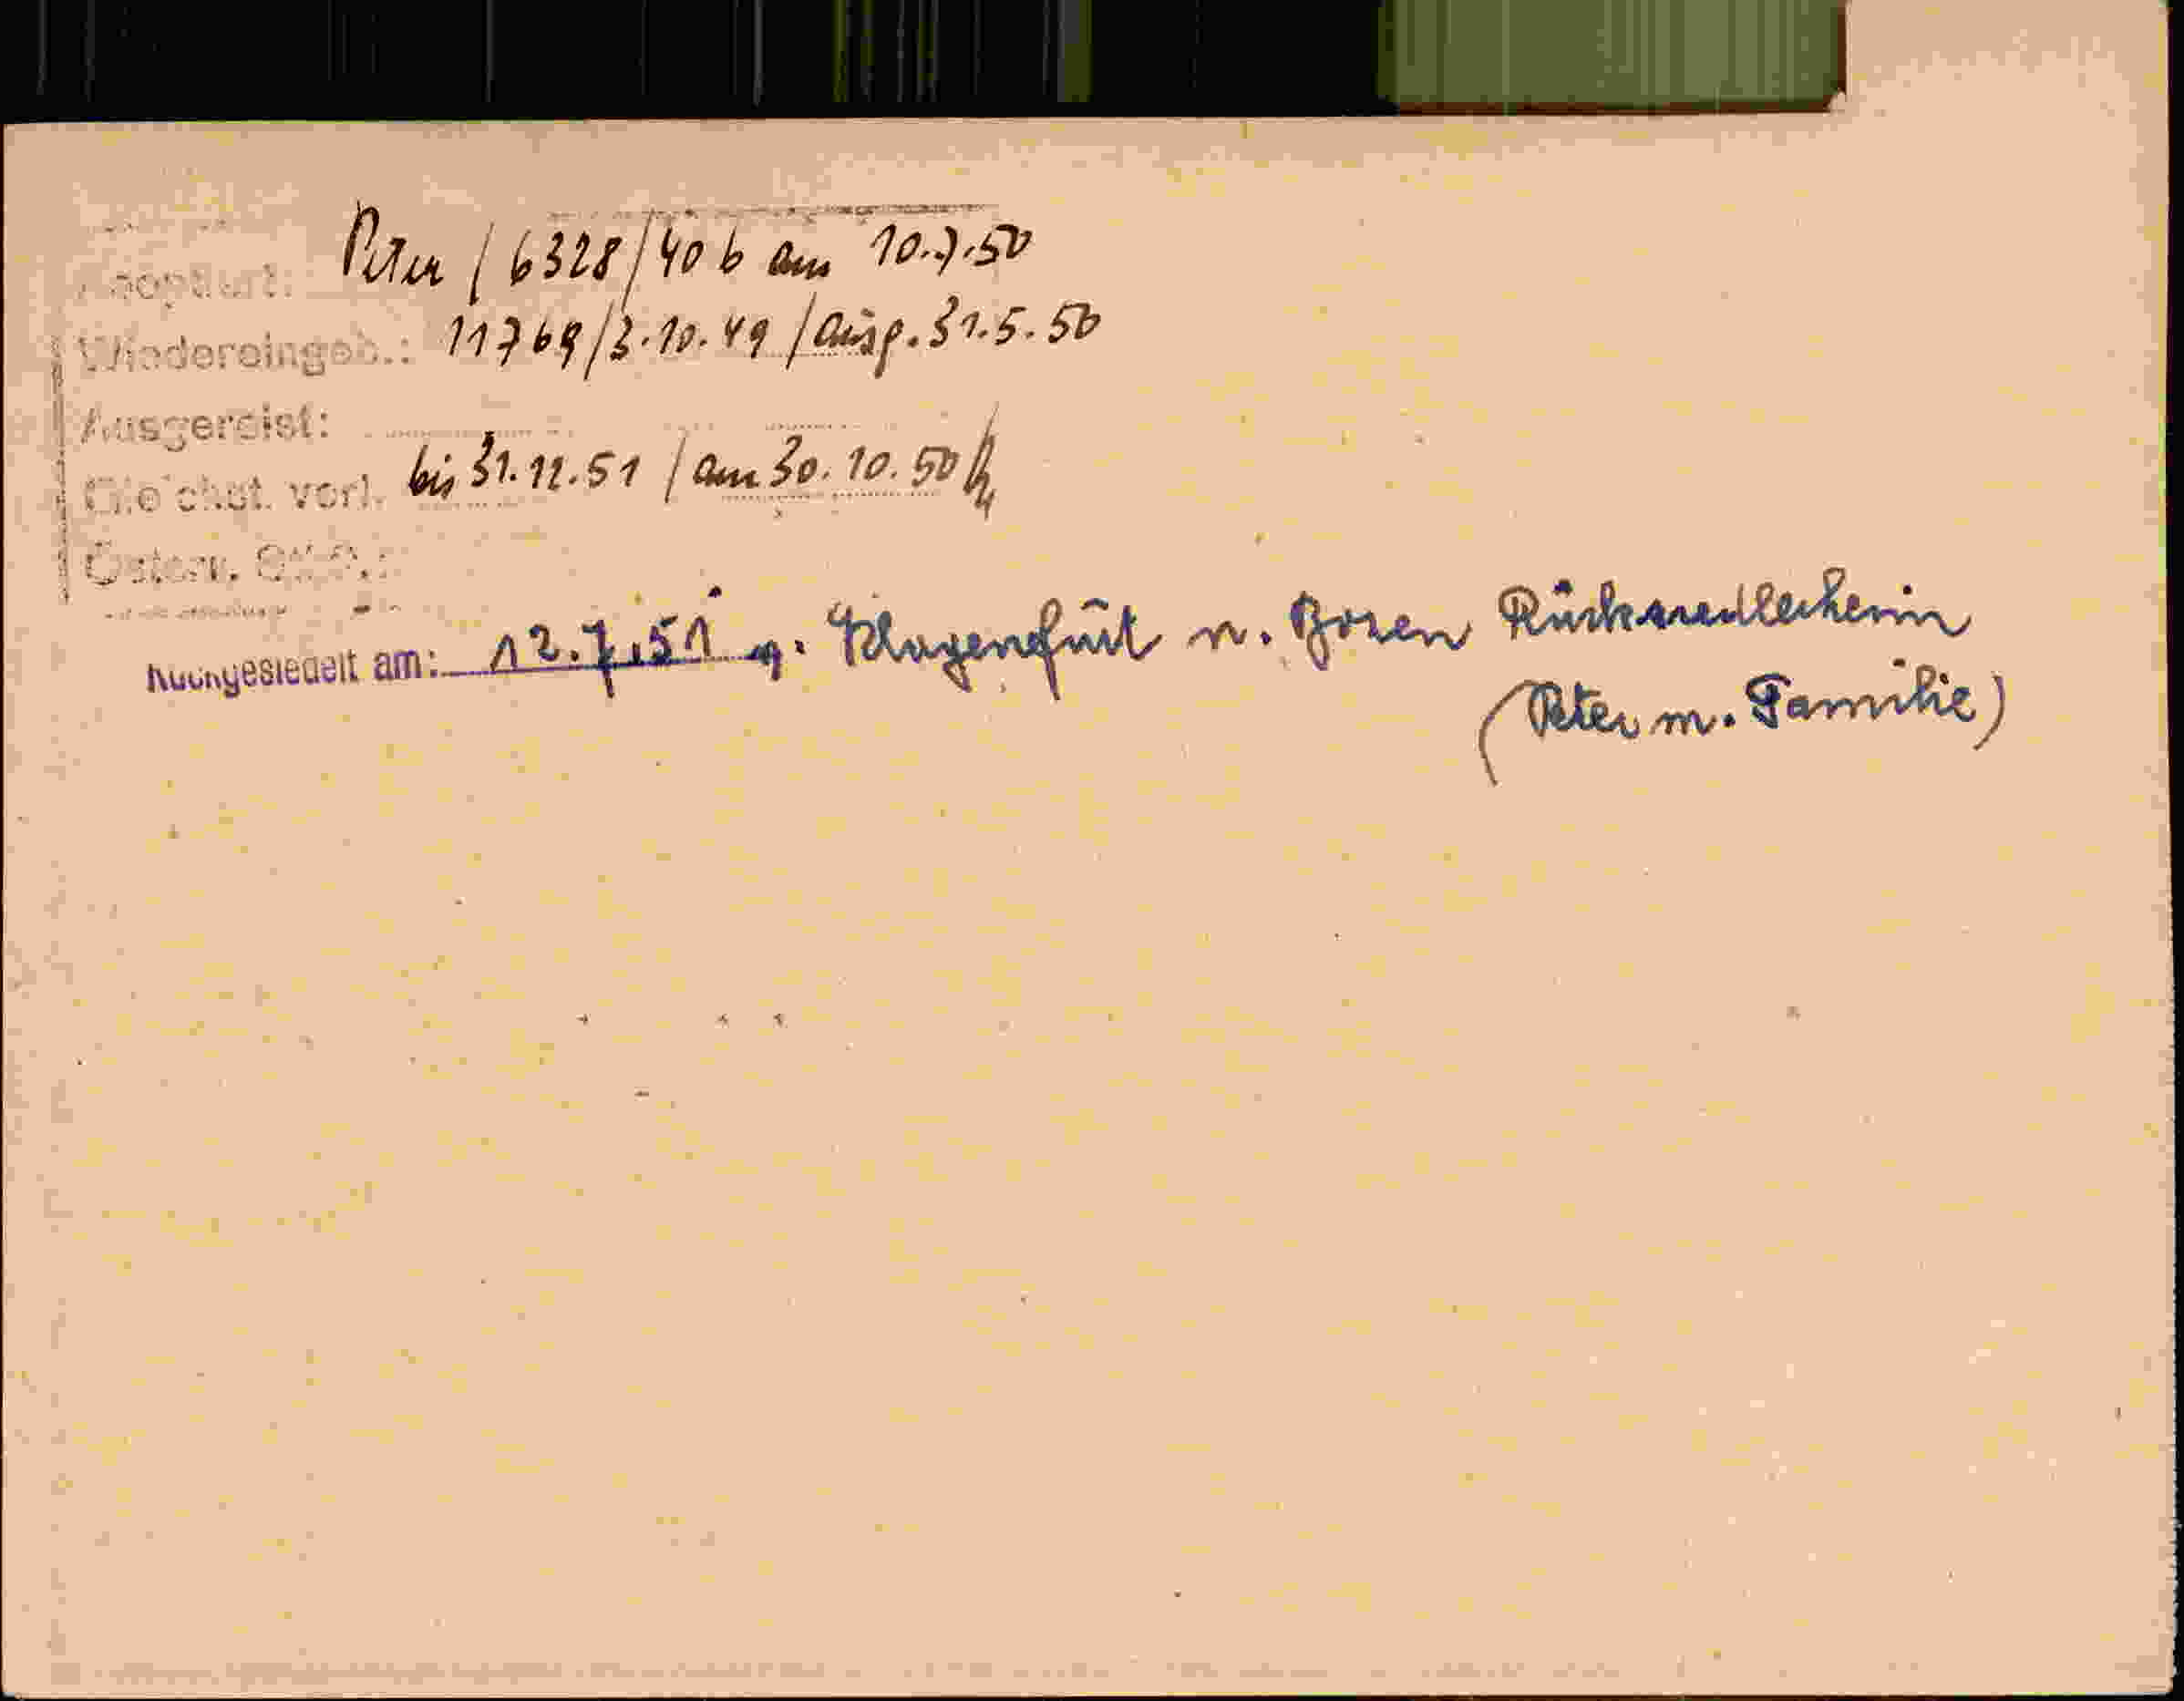 Reoptiert: Peter / 6328/40 b am 10.7.50
Wiedereingeb.: 11769/3.10.49 / ausg. 31.5.50
Ausgereist:
Gleichst. vorl. bis 31.12.51 / am 30.10.50
Österr.
Rückgesiedelt am: 12.7.51 v. Klagenfurt n. Bozen
(Peter m. Familie)